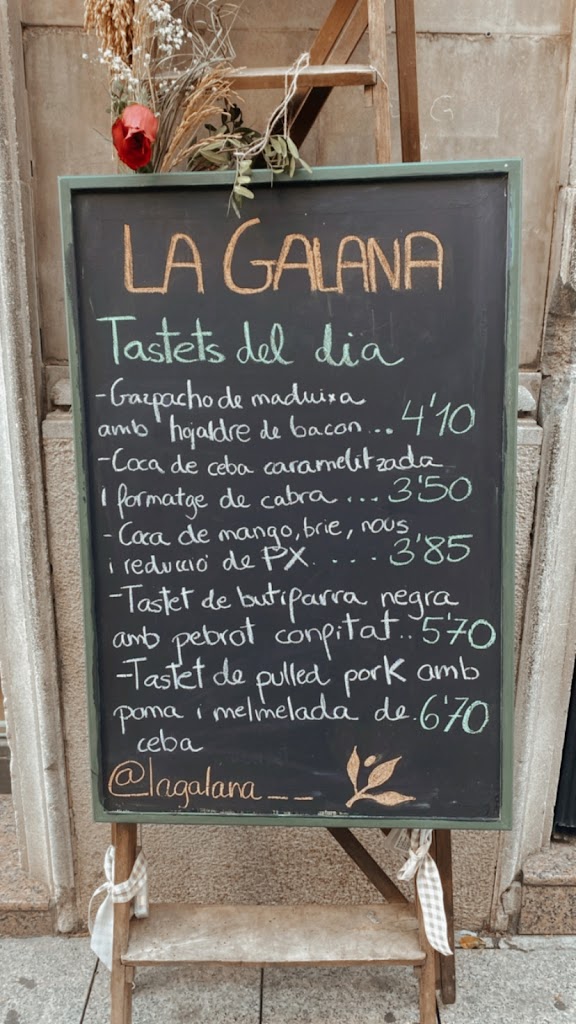 LA GALANA
Tastets del dia
-Gazpacho de maduixa
amb hojaldre de bacon... 4'10
-Coca de ceba caramelitzada
i formatge de cabra ... 3'50
-Coca de mango, brie, nous
i reducció de PX. . . . 3'85
-Tastet de butifarra negra
amb pebrot confitat.. 5'70
-Tastet de pulled pork amb
poma i melmelada de. 6'70
ceba
@lagalana__